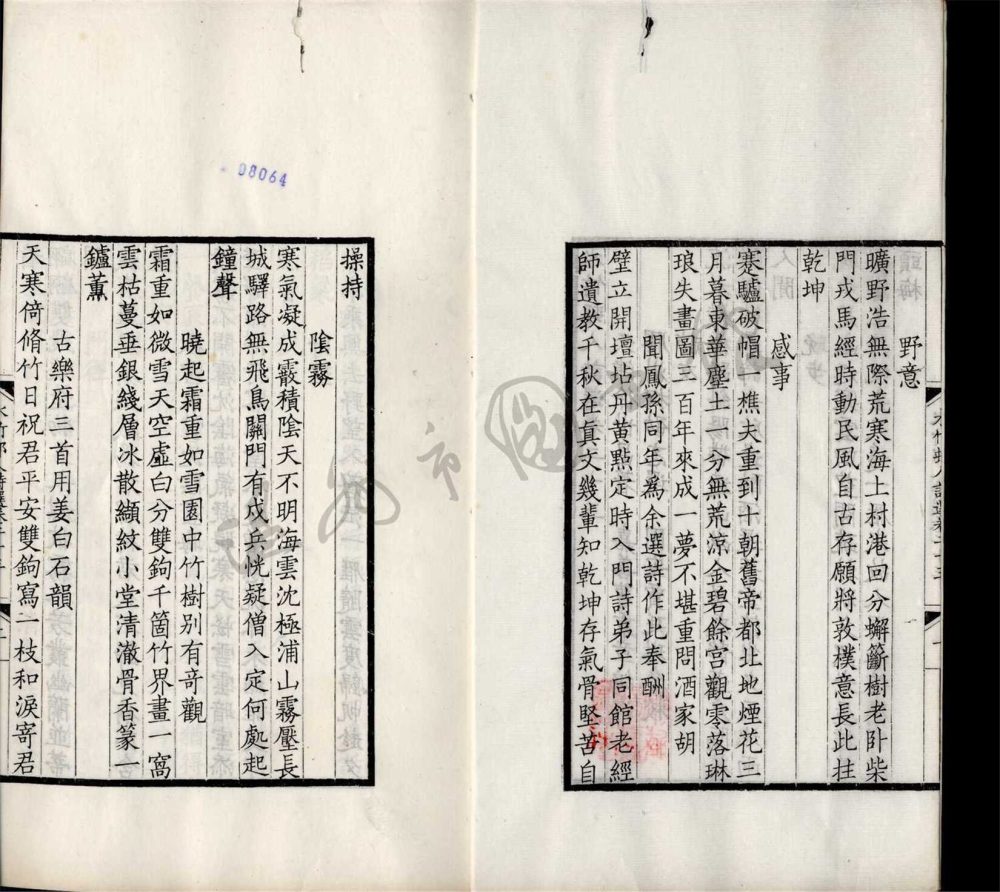 野意
曠野浩無際荒寒海上村港回分蠏籪樹老卧柴
門戎馬經時動民風自古存願將敦樸意長此拄
乾坤
感事
蹇驢破帽一樵夫重到十朝舊帝都北地煙花三
月暮東華塵土一分無荒涼金碧餘宮觀零落琳
琅失畫圖三百年來成一夢不堪重問酒家胡
聞鳳孫同年爲余選詩作此奉酬
壁立開壇坫丹黃點定時入門詩弟子同館老經
師遺教千秋在真文幾輩知乾坤存氣骨堅苦自
操持
陰霧
寒氣凝成霰積陰天不明海雲沈極浦山霧壓長
城驛路無飛鳥關門有戍兵恍疑僧入定何處起
鐘聲
曉起霜重如雪園中竹樹別有奇觀
霜重如微雪天空虛白分雙鉤千箇竹界畫一窩
雲枯蔓垂銀綫層冰散纈紋小堂清澈骨香篆一
鑪薰
古樂府三首用姜白石韻
天寒倚脩竹日祝君平安雙鉤寫一枝和淚寄君
08064